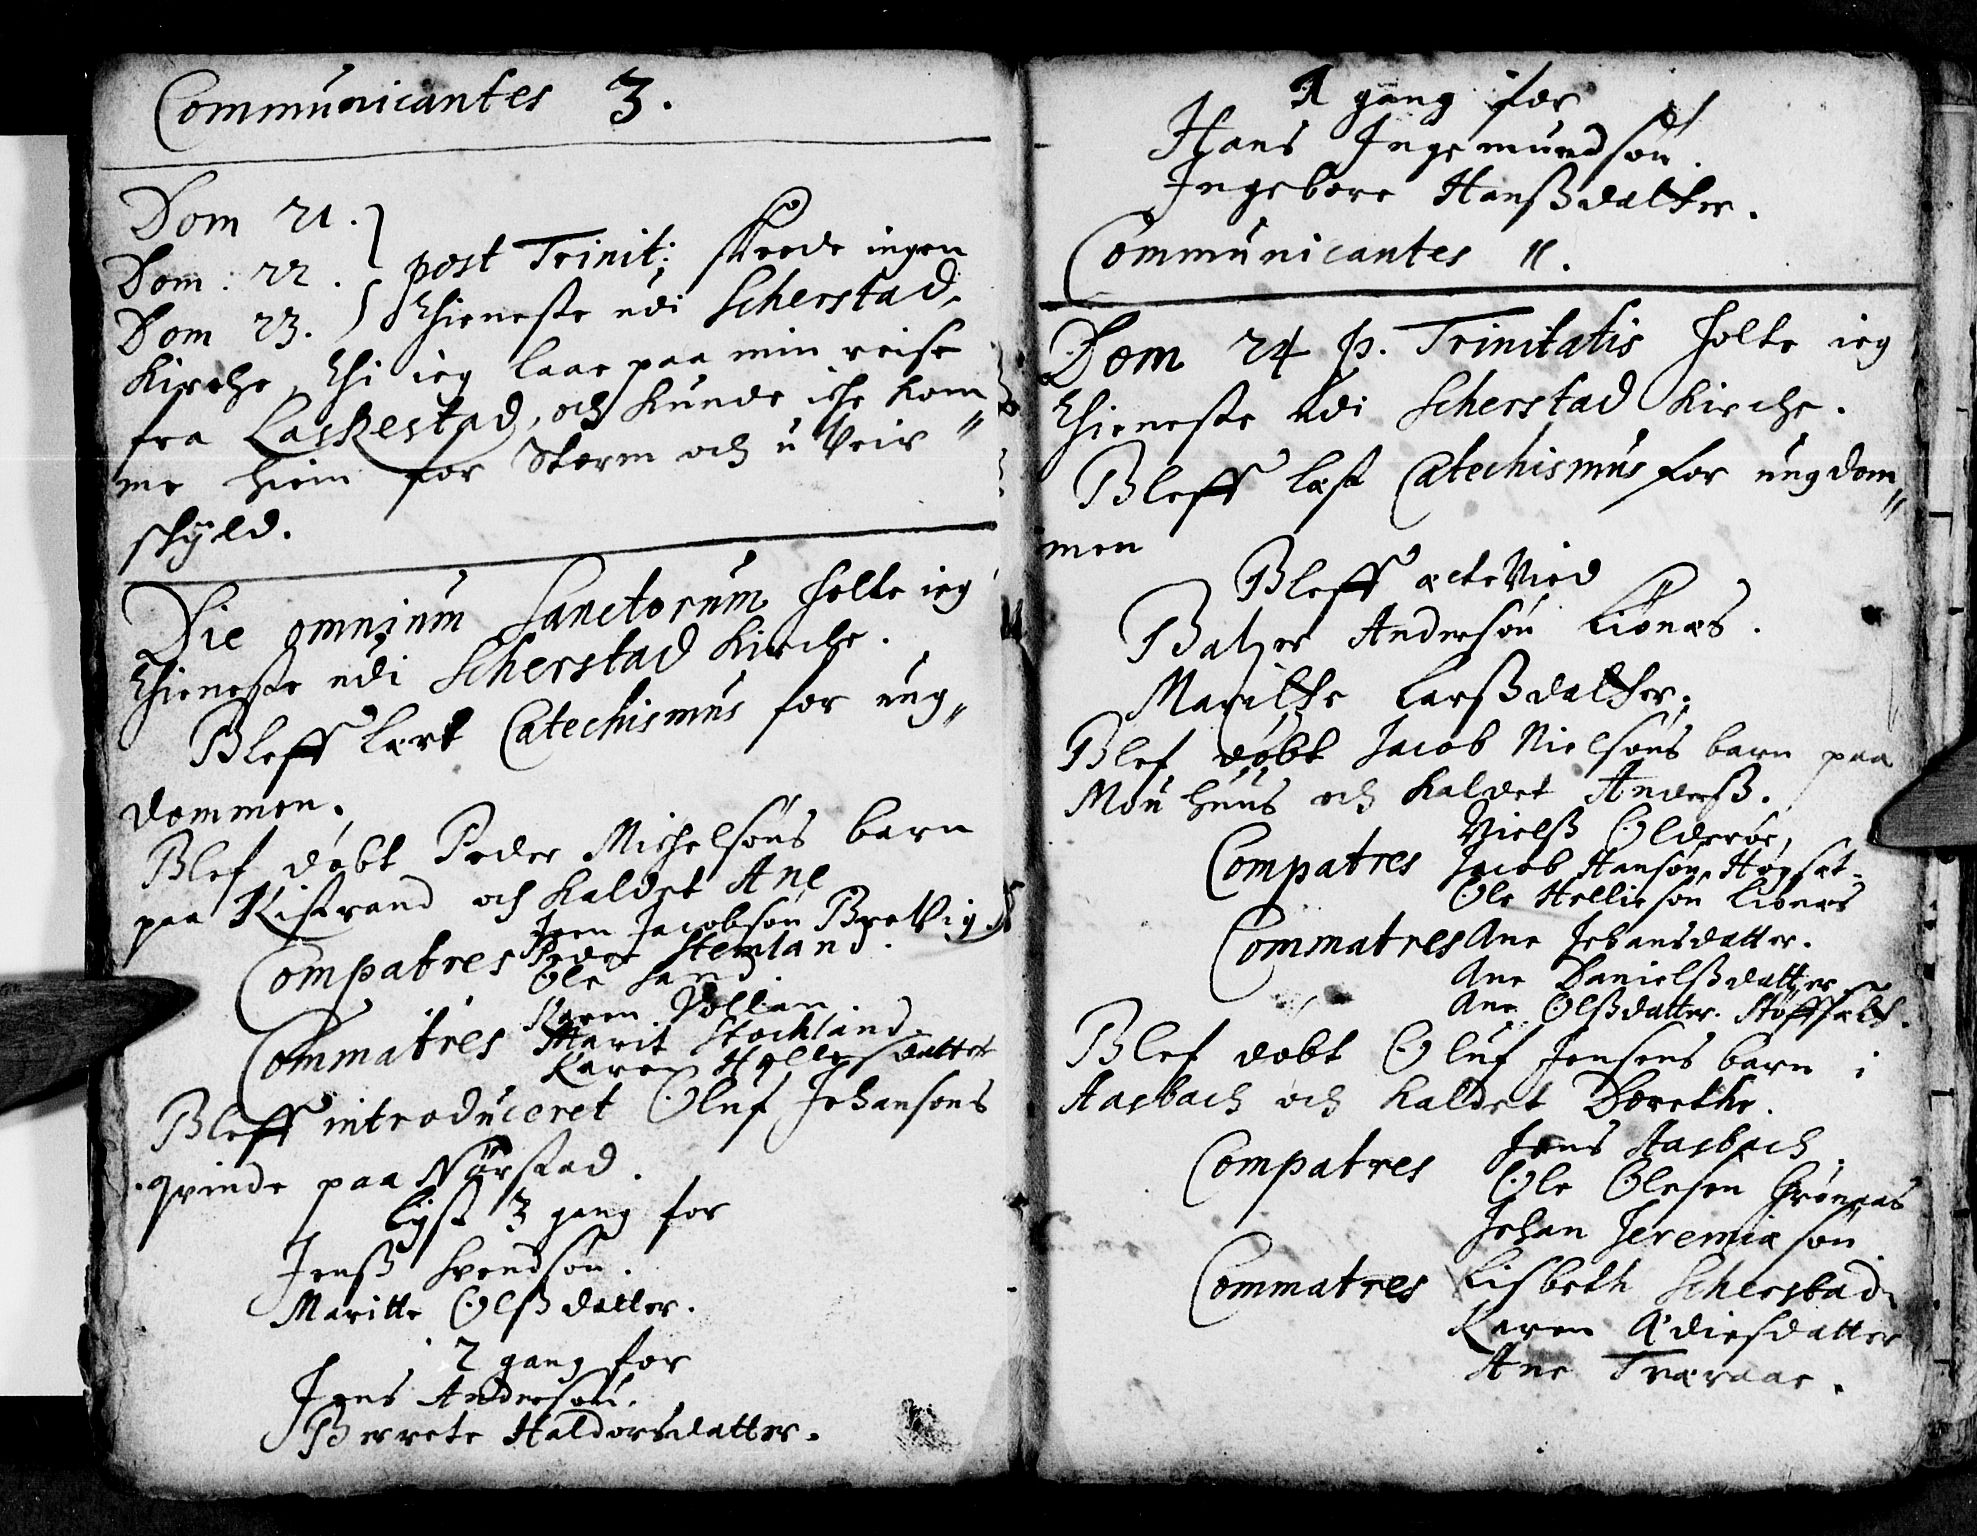 Communicantes 3.
Dom 21.
Dom: 22. post Trinit: skeede ingen
Dom 23. thieneste udi Scherstad
Kirche, thi ieg laae paa min reise
fra Laskestad, och kunde iche kom„
me hiem for Storm och uveir
skyld.
Die omnium Sanctorum holte ieg
thieneste udi Scherstad Kirche.
Bleff lært Catechismus for ung„
dommen.
Blef døbt Peder Michelsøns barn
paa Kistrand och kaldet Ane
Compatres Jern Jacobsøn Brevig
Peder Stemland.
Ole Sand
Commatres Karen
Marit Stochland.
Karen datter
Bleff introduceret Oluf Johansøns
qvinde paa Nørstad.
Lyst 3 gang for
Jenß Svendsøn.
Maritte Olßdatter.
2 gang for
Jens Andersøn.
Berrete Haldorsdatter.
1 gang for
Hans Ingemundsøn.
Ingebore Hanßdatter.
Communicantes 11.
Dom 24 p. Trinitatis holte ieg
thieneste udi Scherstad Kirche.
Bleff læst Catechismus for ungdom„
men
Bleff ectevied
Baltzer Andersøn Liønæs.
Maritte Larßdatter.
Blef døbt Jacob Nielsøns barn paa
Mouhuus och kaldet Anderß.
Compatres Nielß Olderøe,
Jacob Hansøn Høgsæt
Ole Helliesøn Liønæs
Commatres Ane Johansdatter.
Ane Danielßdatter
Ane Olßdatter.
Blef døbt Oluf Jensens barn i
Aasbach och kaldet Dorethe.
Compatres Jens Aasbach.
Ole Olesen Grønaas
Johan Jeremiæsøn
Commatres Lisbeth Scherstad
Karen Ædiesdatter
Ane Tværaae.